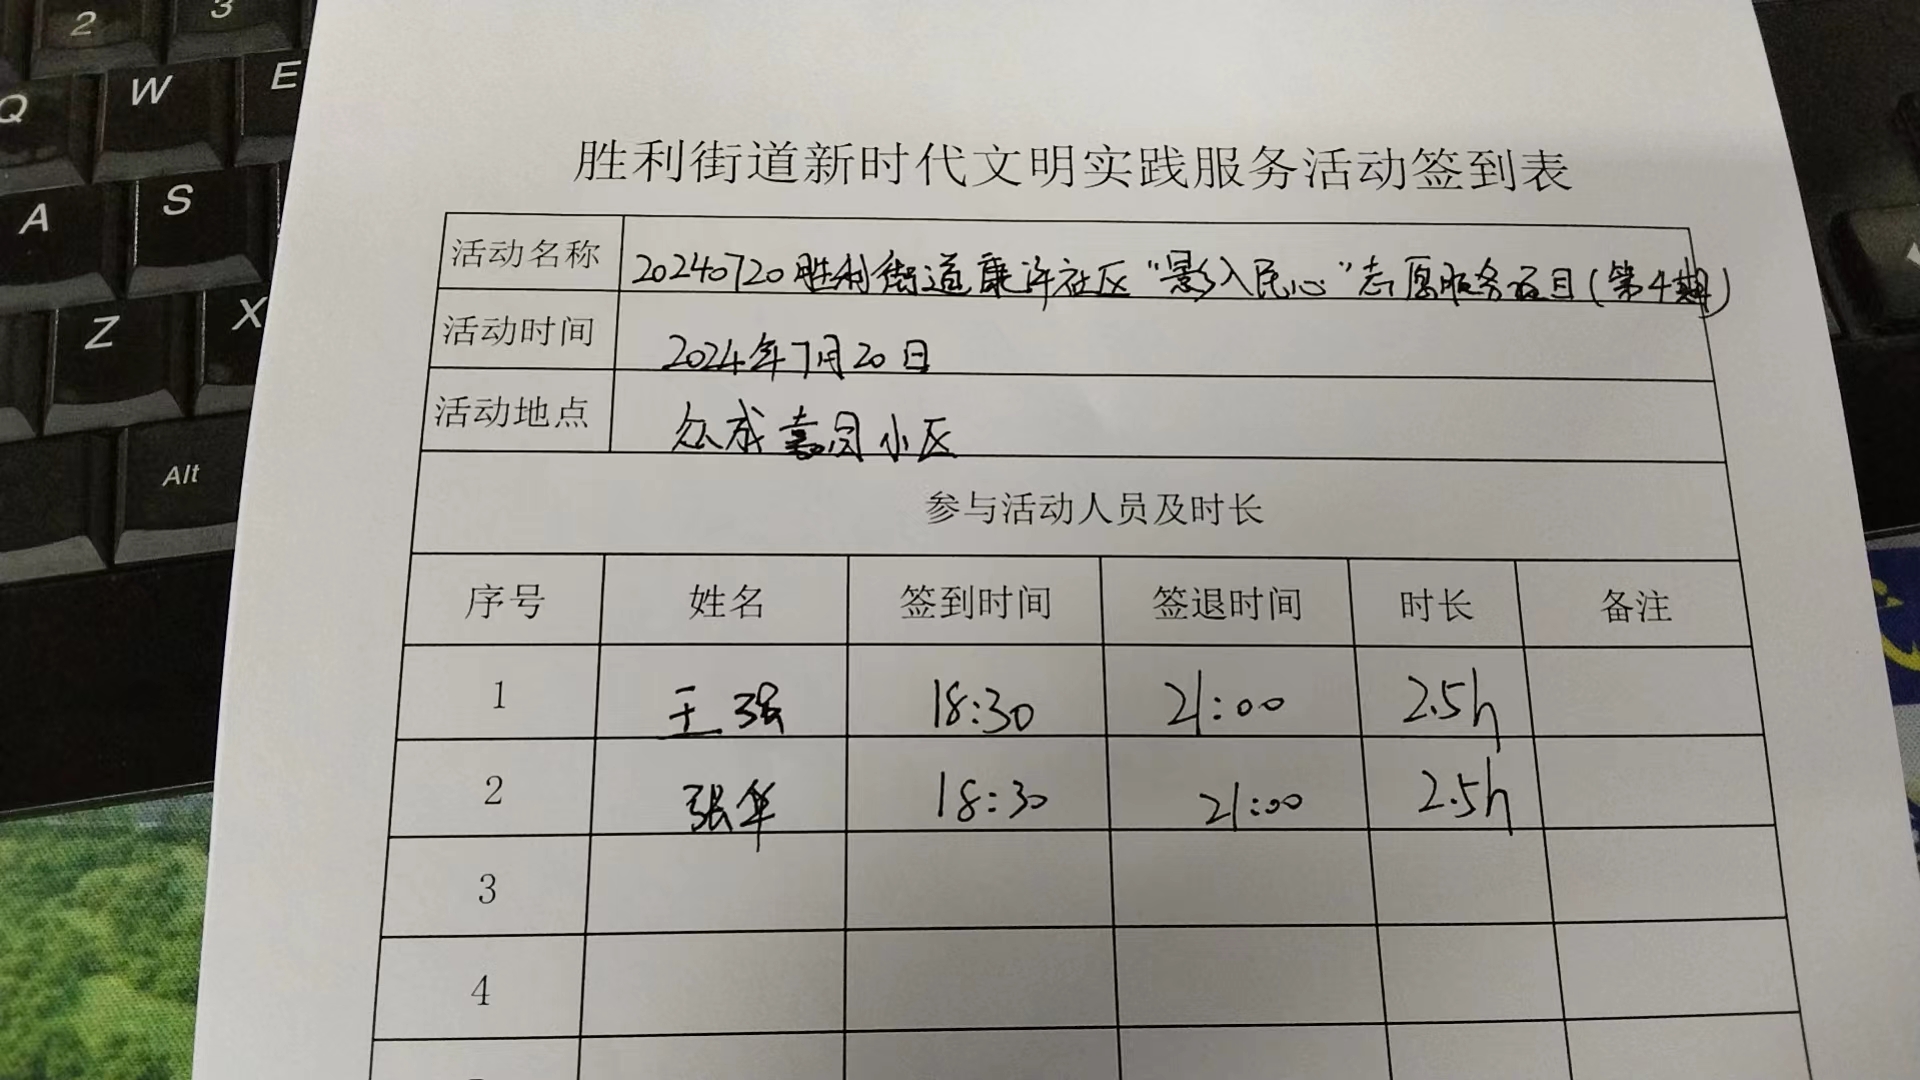 2 3
Q W E
A S
Z X
Alt
胜利街道新时代文明实践服务活动签到表
活动名称 20240720胜利街道康许社区“影入民心”志愿服务项目(第4期)
活动时间 2024年7月20日
活动地点 众成嘉园小区
参与活动人员及时长
序号 姓名 签到时间 签退时间 时长 备注
1 王强 18:30 21:00 2.5h
2 张华 18:30 21:00 2.5h
3
4